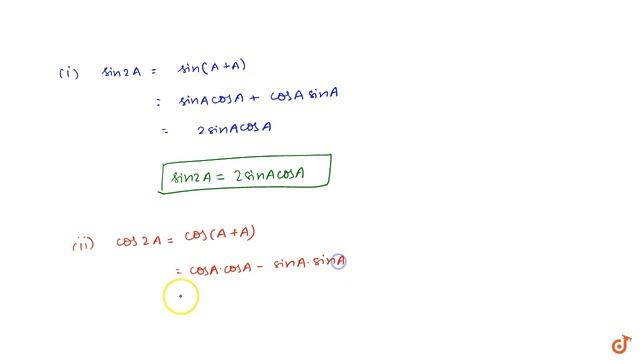 (i) sin2A = sin(A+A)
= sinAcosA + cosAsinA
= 2sinAcosA
sin2A = 2sinAcosA
(ii) cos2A = cos(A+A)
= cosA·cosA - sinA·sinA